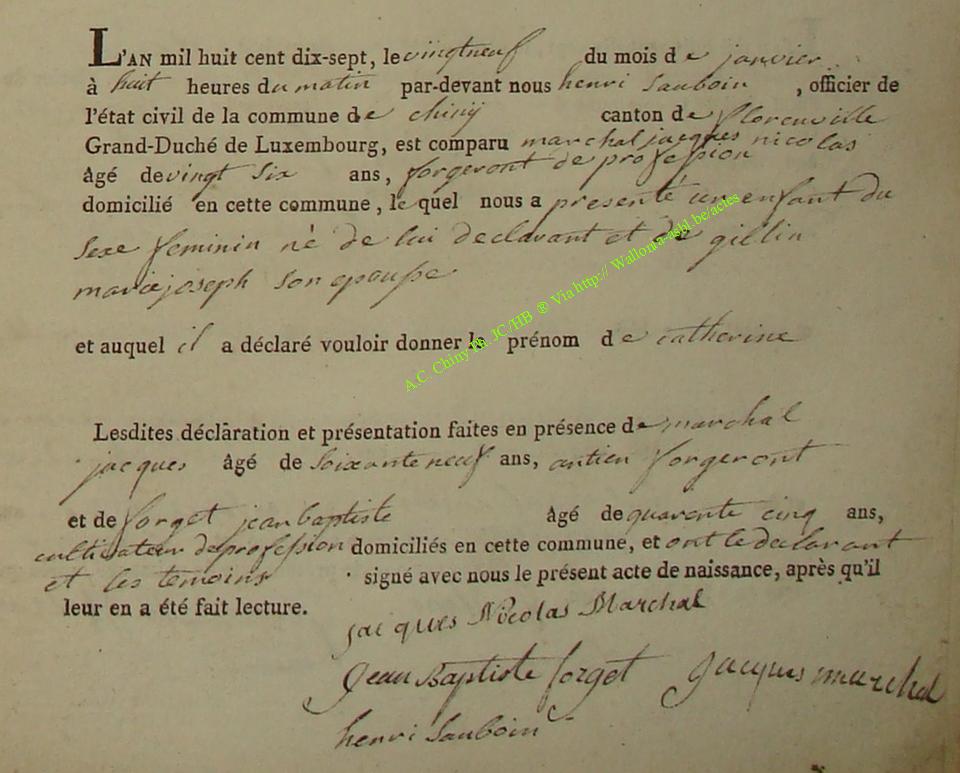 L'AN mil huit cent dix-sept, le vingtneuf du mois de janvier
à huit heures du matin par-devant nous henri Sauboin , officier de
l'état civil de la commune de chiny canton de florenville
Grand-Duché de Luxembourg, est comparu marchal jacques nicolas
âgé de vingt six ans, forgeront de profession
domicilié en cette commune, le quel nous a presenté un enfant du
sexe feminin né de lui declarant et de gillin
marie joseph son epouse
et auquel il a déclaré vouloir donner le prénom de catherine
Lesdites déclaration et présentation faites en présence de marchal
jacques âgé de soixante neuf ans, antien forgeront
et de forget jean baptiste âgé de quarente cinq ans,
cultivateur de profession domiciliés en cette commune, et ont le declarant
et les temoins signé avec nous le présent acte de naissance, après qu'il
leur en a été fait lecture.
jacques Nicolas Marchal
Jean Baptiste forget jacques marchal
henri Sauboin
A.C. Chiny Ph. JC/HB ® Via http:// Wallonia-asbl.be/actes